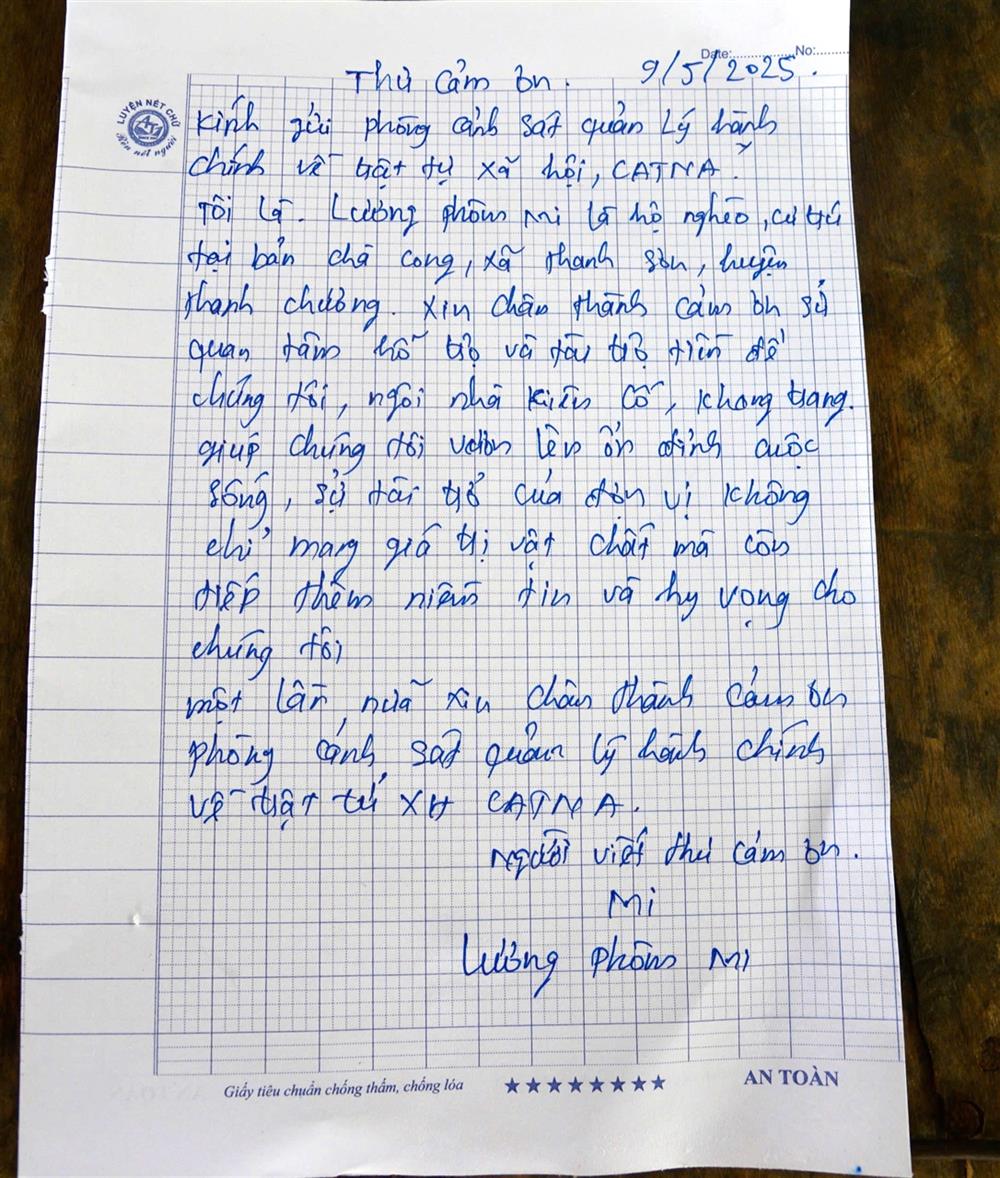 Date:..................No:.........
Thư cảm ơn. 9/5/2025.
LUYỆN NÉT CHỮ
Rèn nết người
Kính gửi phòng cảnh sat quản Lý hành
chính về trật tự xã hội, CATNA.
Tôi là. Lương phôm Mi là hộ nghèo, cư trú
tại bản chà cong, xã thanh sơn, huyện
thanh chương. xin chân thành cảm ơn sự
quan tâm hỗ trợ và tài trợ tiền để
chúng tôi, ngôi nhà kiên cố, khang trang.
giúp chúng tôi vươn lên ổn định cuộc
sống, sự tài trợ của đơn vị không
chỉ mang giá trị vật chất mà còn
tiếp thêm niền tin và hy vọng cho
chúng tôi
một lần, nữa xin chân thành cảm ơn
phòng cảnh sat quản lý hành chính
về trật tự XH CATNA.
Người viết thư cảm ơn.
Mi
Lương phôm Mi
Giấy tiêu chuẩn chống thấm, chống lóa ★★★★★★★★ AN TOÀN